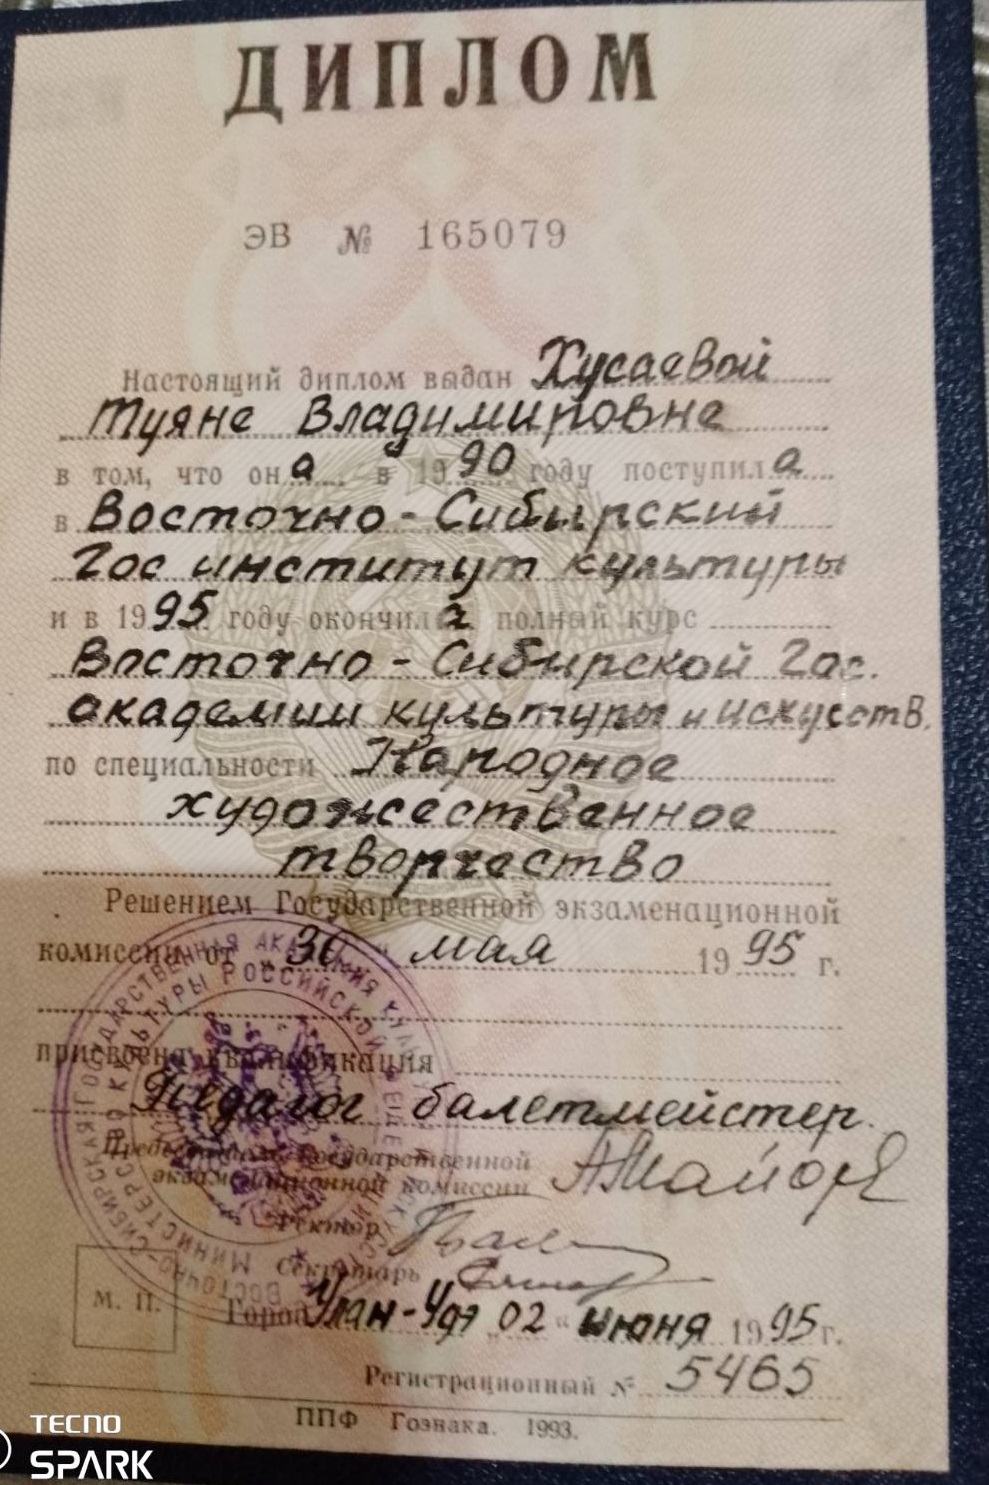 ДИПЛОМ
ЭВ № 165079
Настоящий диплом выдан Хусаевой
Туяне Владимировне
в том, что она в 1990 году поступила
в Восточно-Сибирский
Гос институт культуры
и в 1995 году окончила полный курс
Восточно-Сибирской Гос.
академии культуры и искусств.
по специальности Народное
художественное
творчество
Решением Государственной экзаменационной
комиссии от "30" мая 1995 г.
присвоена квалификация
Педагог балетмейстер.
Председатель Государственной
экзаменационной комиссии
Ректор
Секретарь
М. П.
Город Улан-Удэ „02“ июня 1995 г.
Регистрационный № 5465
ППФ Гознака. 1993.
TECNO
SPARK